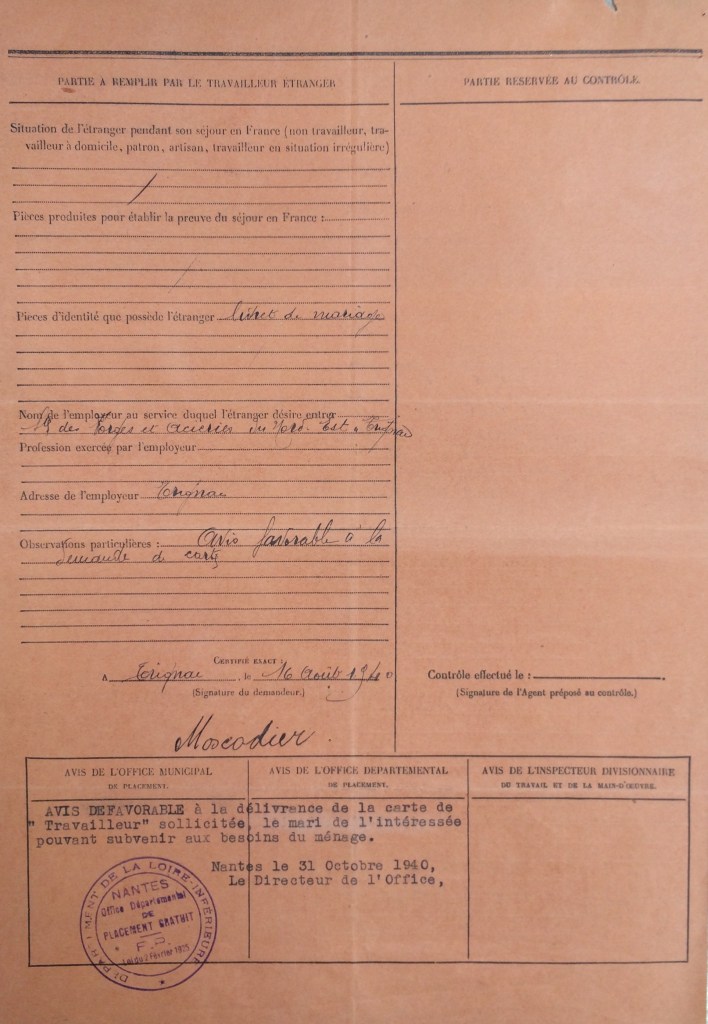 PARTIE A REMPLIR PAR LE TRAVAILLEUR ETRANGER
Situation de l'étranger pendant son séjour en France (non travailleur, tra-
vailleur à domicile, patron, artisan, travailleur en situation irrégulière)
Pièces produites pour établir la preuve du séjour en France :
Pièces d'identité que possède l'étranger livret de mariage
Nom de l'employeur au service duquel l'étranger désire entrer
des Forges et Aciéries du Nord-Est à Trignac
Profession exercée par l'employeur
Adresse de l'employeur Trignac
Observations particulières : Avis favorable à la
demande de carte
CERTIFIÉ EXACT :
A Trignac, le 16 Août 1940
(Signature du demandeur.)
Moscodier.
PARTIE RESERVÉE AU CONTRÔLE.
Contrôle effectué le :
(Signature de l'Agent préposé au contrôle.)
AVIS DE L'OFFICE MUNICIPAL
DE PLACEMENT.
AVIS DE L'OFFICE DÉPARTEMENTAL
DE PLACEMENT.
AVIS DE L'INSPECTEUR DIVISIONNAIRE
DU TRAVAIL ET DE LA MAIN-D'ŒUVRE.
AVIS DEFAVORABLE à la délivrance de la carte de
" Travailleur" sollicitée, le mari de l'intéressée
pouvant subvenir aux besoins du ménage.
Nantes le 31 Octobre 1940,
Le Directeur de l'Office,
DÉPARTEMENT DE LA LOIRE-INFÉRIEURE
NANTES
Office Départemental
DE
PLACEMENT GRATUIT
F.P.
Loi du 2 Février 1925